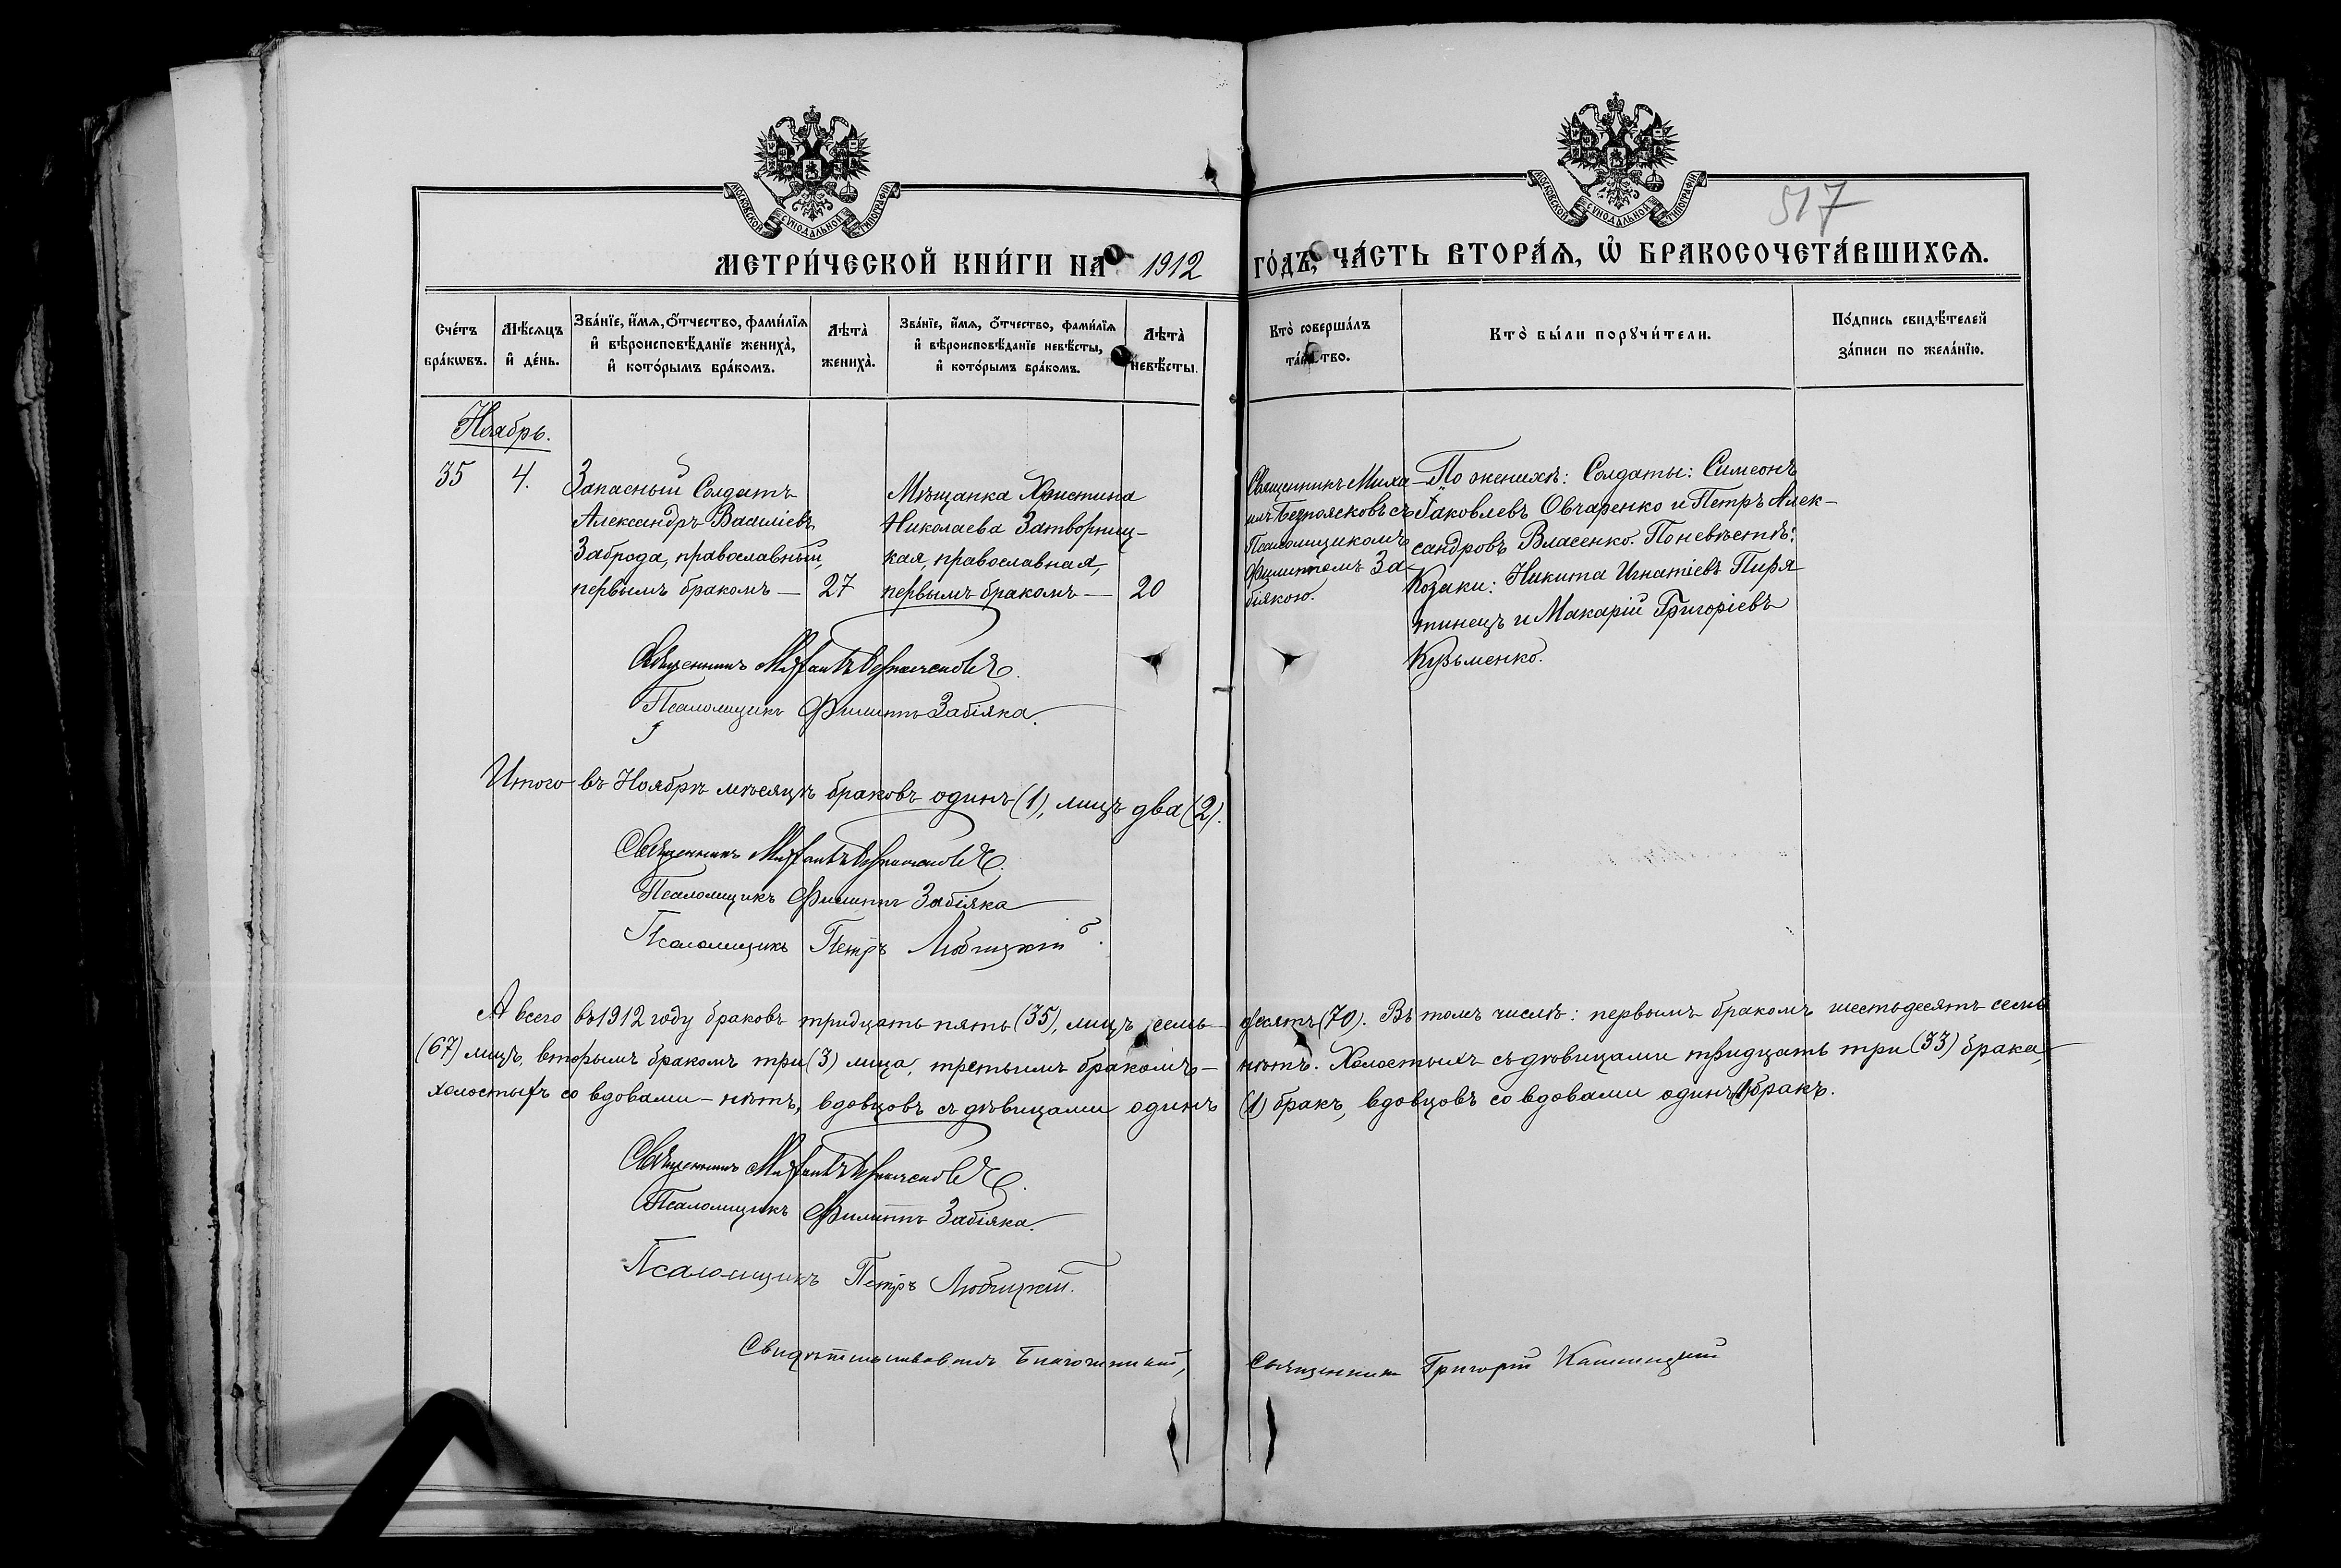 МОСКОВСКОЙ СѴНОДАЛЬНОЙ ТИПОГРАФІИ
МОСКОВСКОЙ СѴНОДАЛЬНОЙ ТИПОГРАФІИ
517
МЕТРИ́ЧЕСКОЙ КНИ́ГИ НА 1912 ГО́ДЪ, ЧА́СТЬ ВТОРА́Я, Ѽ БРАКОСОЧЕТА́ВШИХСЯ.
Сче́тъ бра́кѡвъ.
Мѣ́сяцъ и҆ де́нь.
Зва́нїе, и҆́мя, ѻ҆́тчество, фами́лїя и҆ вѣроисповѣ́данїе жениха̀, и҆ кото́рымъ бра́комъ.
Лѣта̀ жениха̀.
Зва́нїе, и҆́мя, ѻ҆́тчество, фами́лїя и҆ вѣроисповѣ́данїе невѣ́сты, и҆ кото́рымъ бра́комъ.
Лѣта̀ невѣ́сты.
Кто̀ соверша́лъ та́инство.
Кто̀ бы́ли порꙋчи́тели.
По́дпись свидѣ́телей за́писи по жела́нїю.
Ноябрь.
35
4.
Запасный Солдатъ
Александръ Василіевъ
Заброда, православный,
первымъ бракомъ —
27
Мѣщанка Христина
Николаева Затворниц-
кая, православная,
первымъ бракомъ —
20
Священникъ Миха-
илъ Безпоясковъ съ
Псаломщикомъ
Филиппомъ За-
біякою.
По женихѣ: Солдаты: Симеонъ
Іаковлевъ Овчаренко и Петръ Алек-
сандровъ Власенко. По невѣстѣ:
Козаки: Никита Игнатіевъ Пиря-
тинецъ и Макарій Григоріевъ
Кузьменко.
Священникъ Михаилъ Безпоясковъ.
Псаломщикъ Филиппъ Забіяка.
Итого въ Ноябрѣ мѣсяцѣ браковъ одинъ (1), лицъ два (2).
Священникъ Михаилъ Безпоясковъ.
Псаломщикъ Филиппъ Забіяка
Псаломщикъ Петръ Любицкій.
А всего въ 1912 году браковъ тридцать пять (35), лицъ семь-десятъ (70). Въ томъ числѣ: первымъ бракомъ шестьдесятъ семь
(67) лицъ, вторымъ бракомъ три (3) лица, третьимъ бракомъ — нѣтъ. Холостыхъ съ дѣвицами тридцать три (33) брака,
холостыхъ со вдовами — нѣтъ, вдовцовъ съ дѣвицами одинъ (1) бракъ, вдовцовъ со вдовами одинъ (1) бракъ.
Священникъ Михаилъ Безпоясковъ.
Псаломщикъ Филиппъ Забіяка.
Псаломщикъ Петръ Любицкій.
Свидѣтельствовалъ Благочинный, Священникъ Григорій